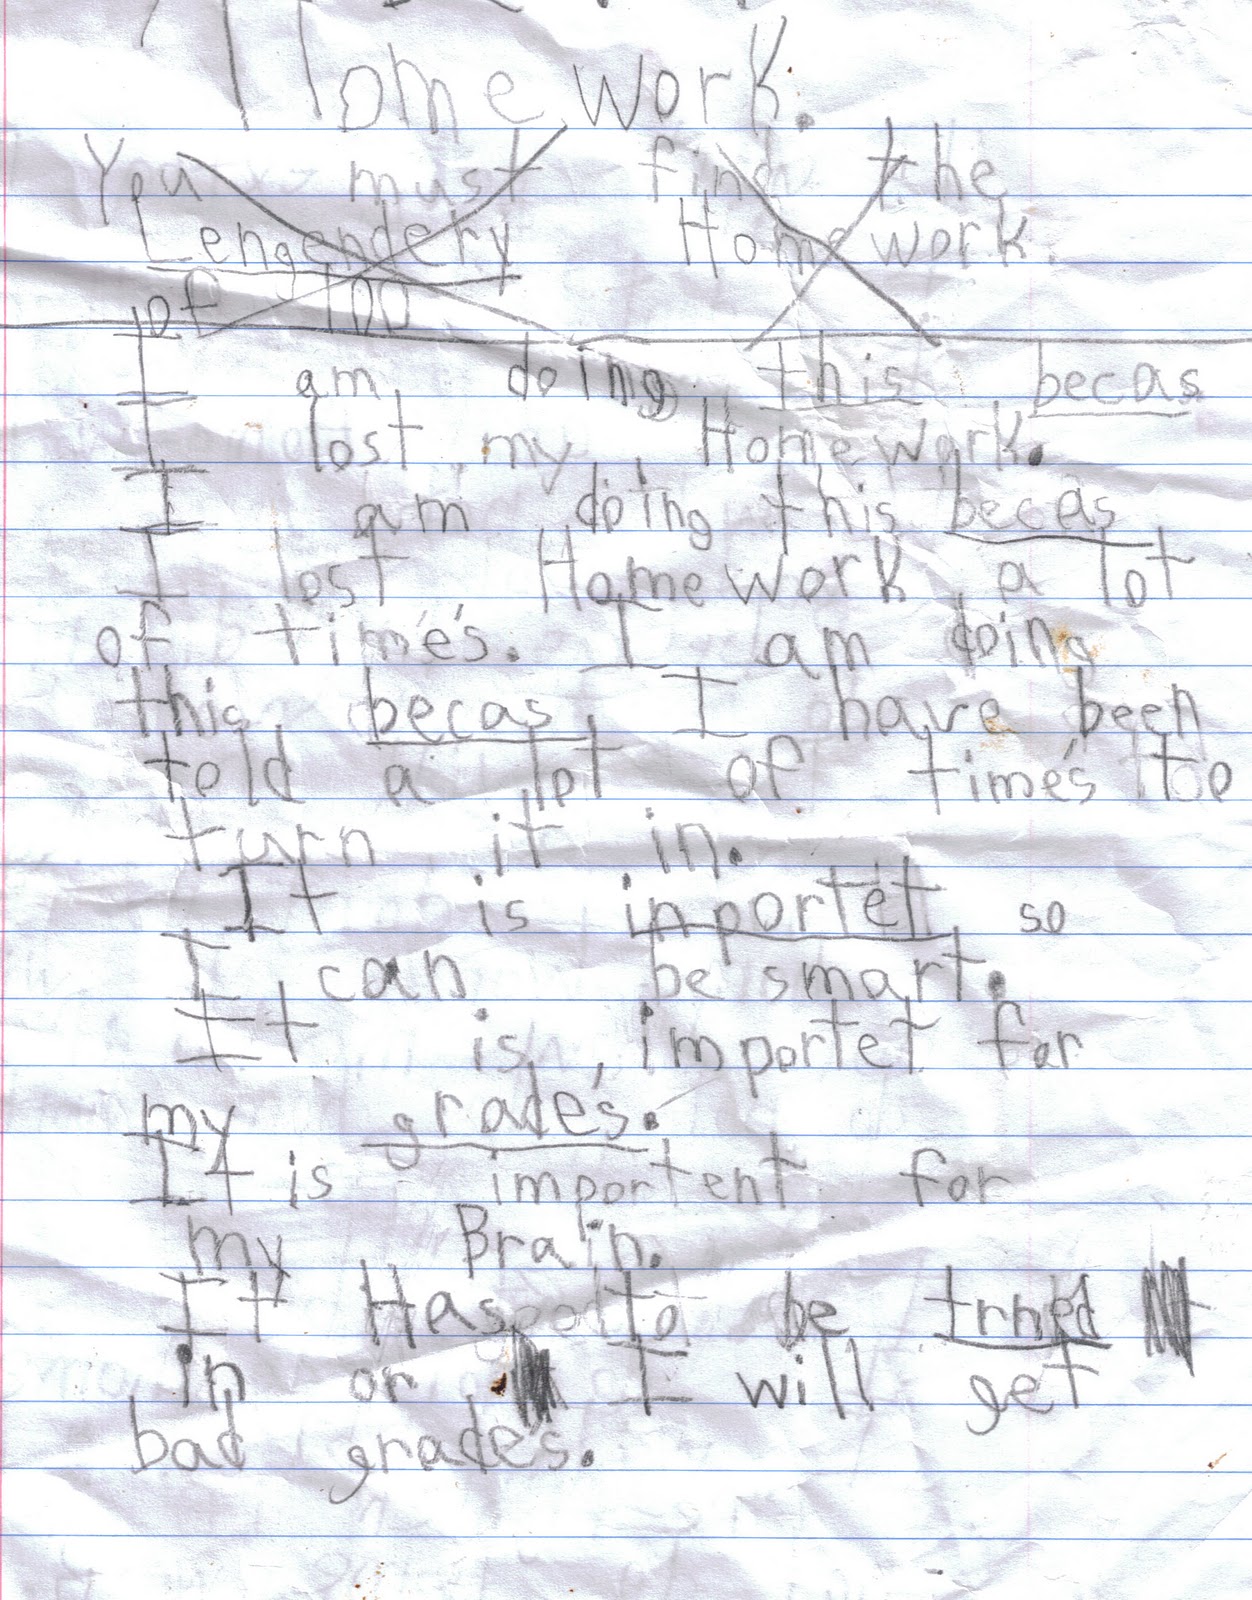 Home work.
You must find the
Lengendery Home work.
of 100
I am doing this becas
I lost my Homework.
I am doing this becas
I lost Homework a lot
of time's. I am doing
this becas I have been
told a lot of time's to
turn it in.
It is inportet so
I can be smart.
It is importet for
my grade's.
It is importent for
my Brain.
It Has to be trned
in or I will get
bad grade's.